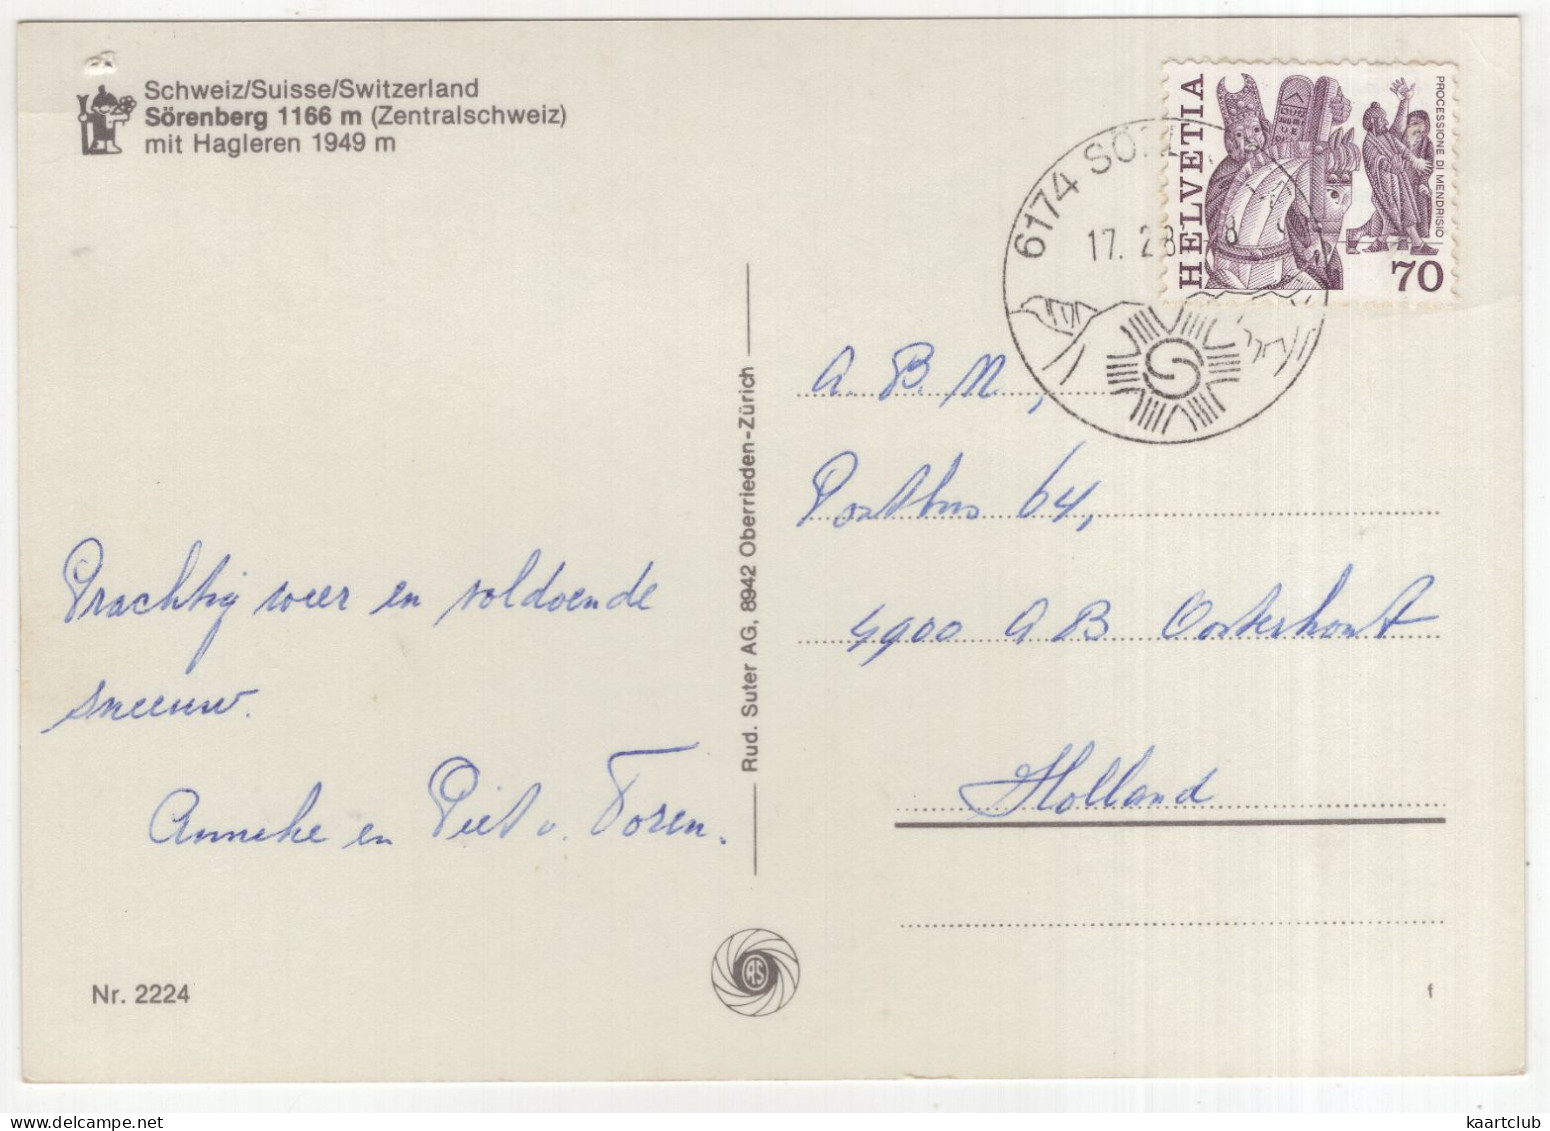 Schweiz/Suisse/Switzerland
Sörenberg 1166 m (Zentralschweiz)
mit Hagleren 1949 m
HELVETIA
PROCESSIONE DI MENDRISIO
70
6174 SÖR
17. 2.8
A. B. N.,
Postbus 64,
4900 AB Oosterhout
Holland
Prachtig weer en voldoende
sneeuw.
Anneke en Piet v. Toren.
Rud. Suter AG, 8942 Oberrieden-Zürich
RS
Nr. 2224
f
kaartclub